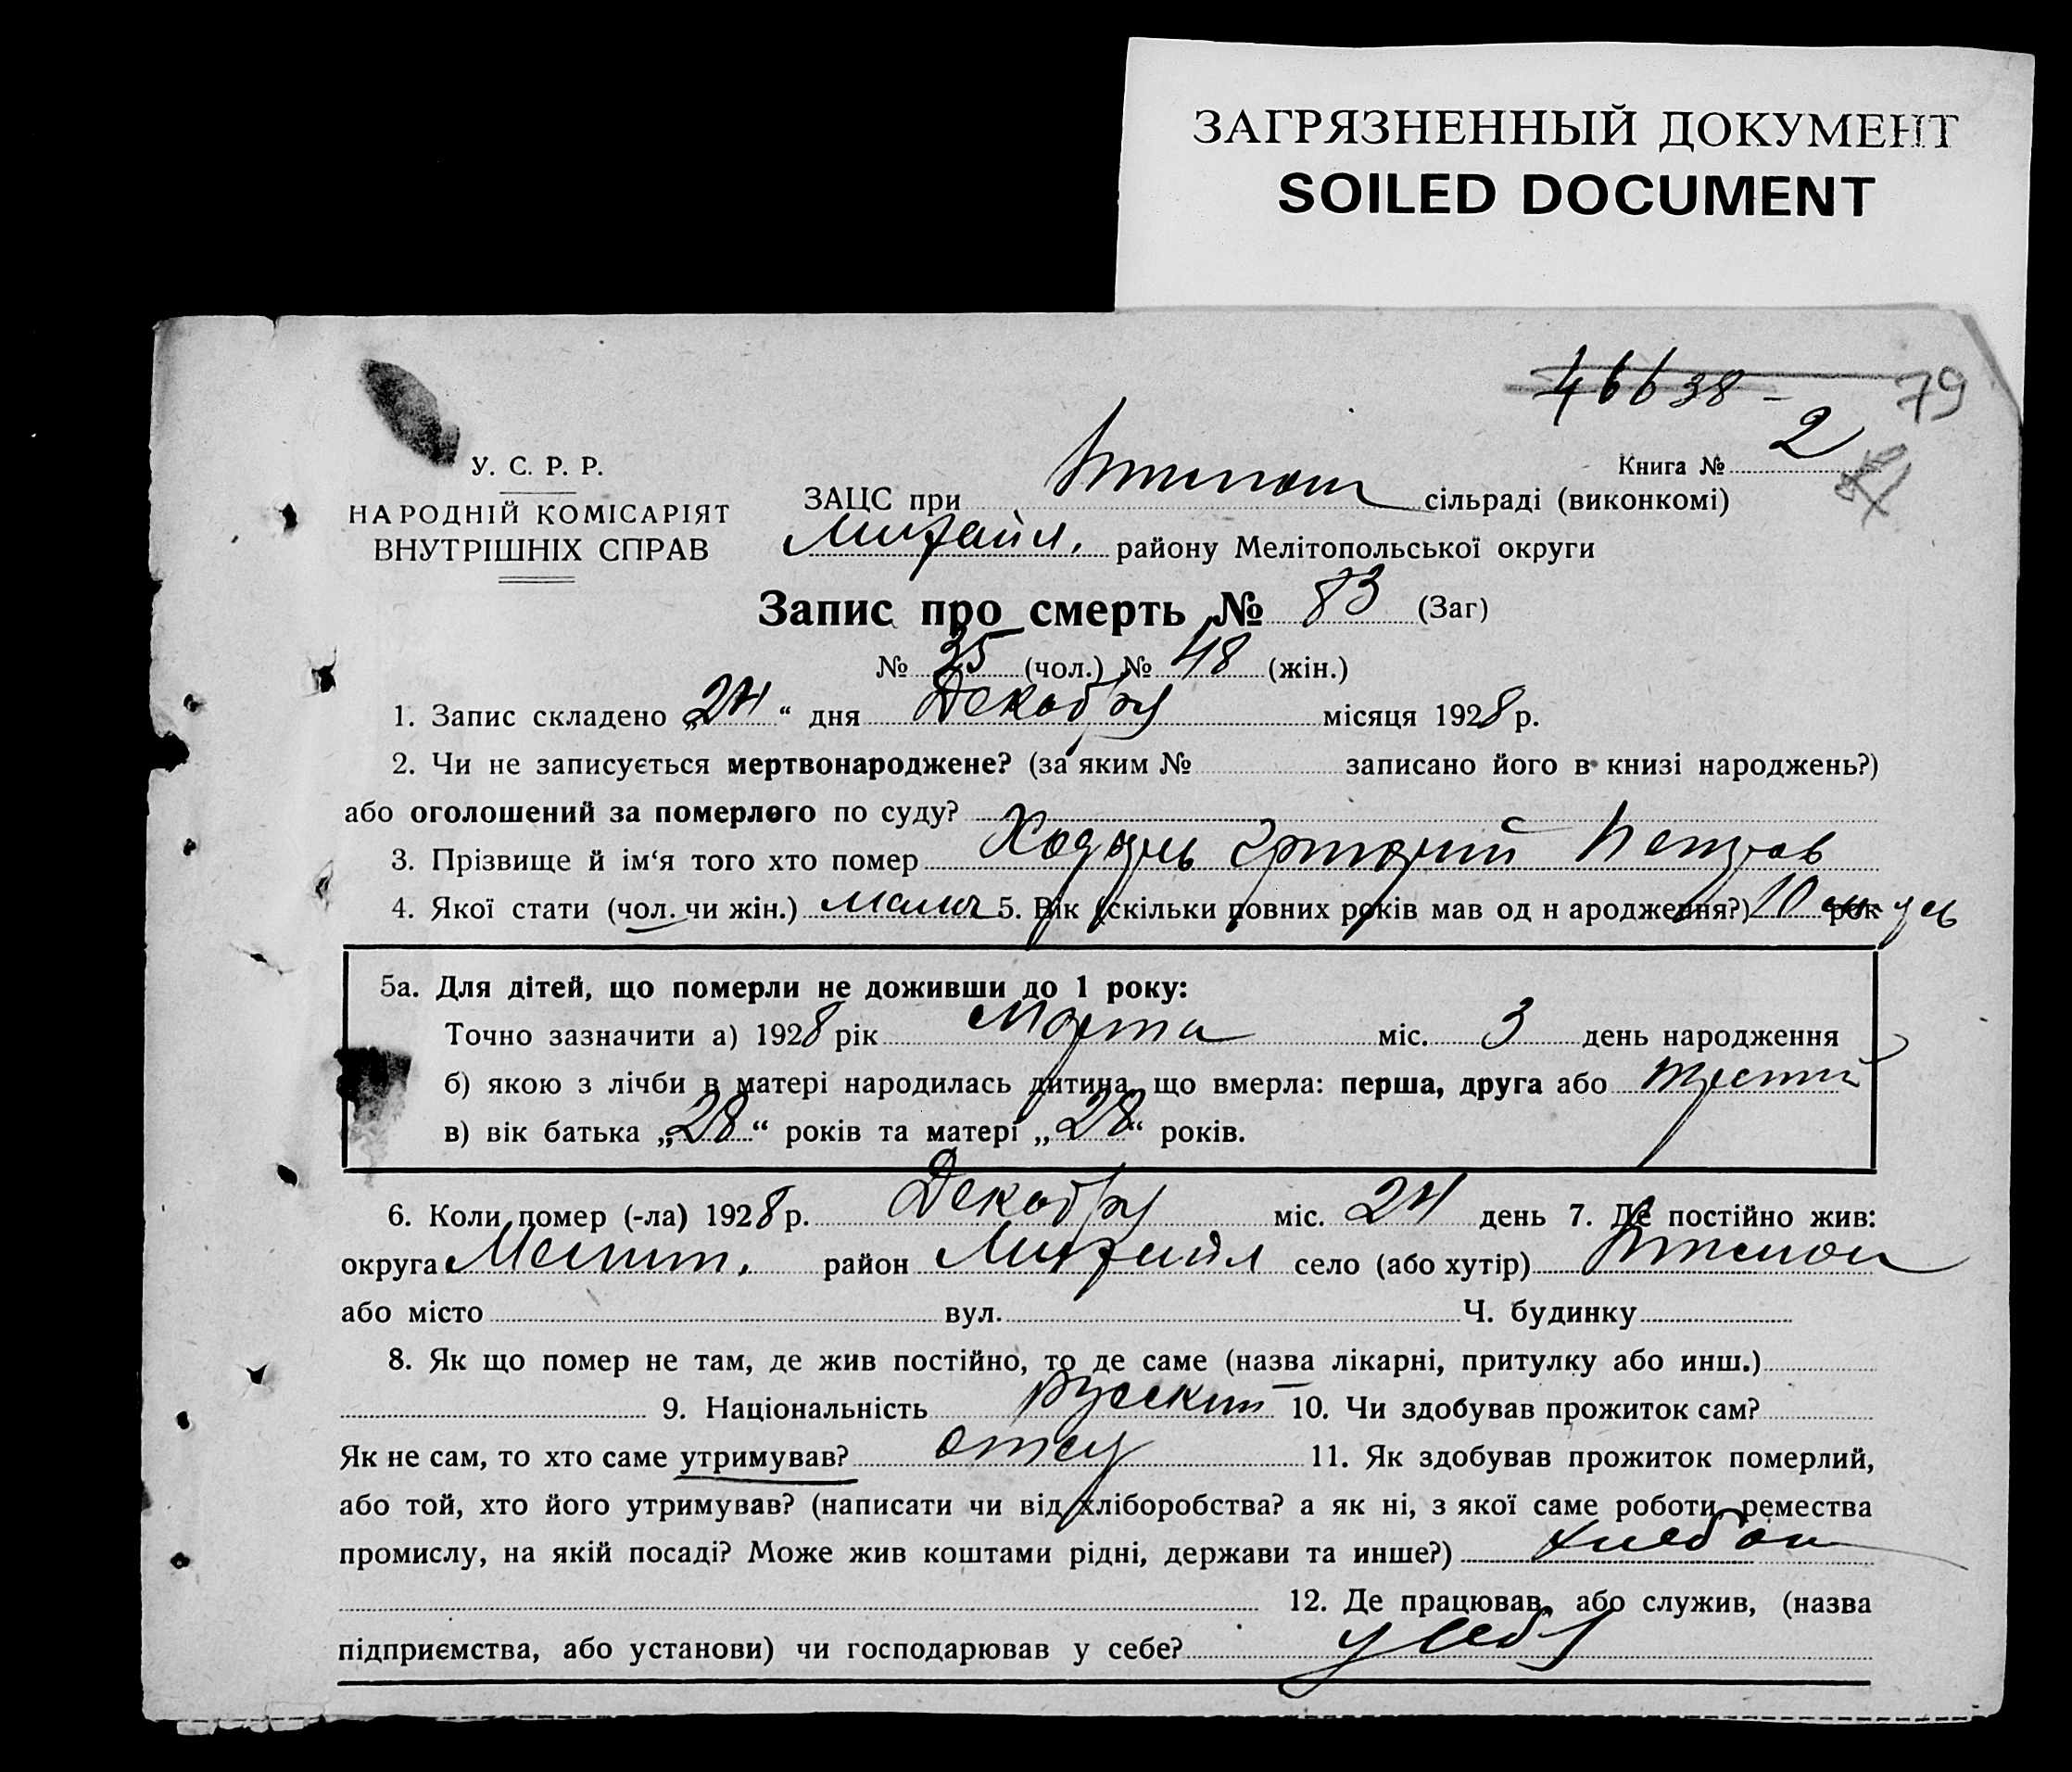 ЗАГРЯЗНЕННЫЙ ДОКУМЕНТ
SOILED DOCUMENT
46638 - 79
У. С. Р. Р.
НАРОДНІЙ КОМІСАРІЯТ
ВНУТРІШНІХ СПРАВ
Книга № 2
ЗАЦС при сільраді (виконкомі)
Михайл. району Мелітопольської округи
Запис про смерть № 83 (Заг)
№ 35 (чол.) № 48 (жін.)
1. Запис складено „24“ дня Декабру місяця 1928 р.
2. Чи не записується мертвонароджене? (за яким № записано його в книзі народжень?)
або оголошений за померлого по суду?
3. Прізвище й ім‘я того хто помер Григорий Петров
4. Якої стати (чол. чи жін.) 5. Вік (скільки повних років мав од н ародження?) 10 рок
5а. Для дітей, що померли не доживши до 1 року:
Точно зазначити а) 1928 рік Марта міс. 3 день народження
б) якою з лічби в матері народилась дитина, що вмерла: перша, друга або третий
в) вік батька „28“ років та матері „28“ років.
6. Коли помер (-ла) 1928 р. Декабру міс. 24 день 7. Де постійно жив:
округа Мелит. район Михайл село (або хутір)
або місто вул. Ч. будинку
8. Як що помер не там, де жив постійно, то де саме (назва лікарні, притулку або инш.)
9. Національність русский 10. Чи здобував прожиток сам?
Як не сам, то хто саме утримував? отец 11. Як здобував прожиток померлий,
або той, хто його утримував? (написати чи від хліборобства? а як ні, з якої саме роботи, ремества
промислу, на якій посаді? Може жив коштами рідні, держави та инше?)
12. Де працював, або служив, (назва
підприємства, або установи) чи господарював у себе? у себя